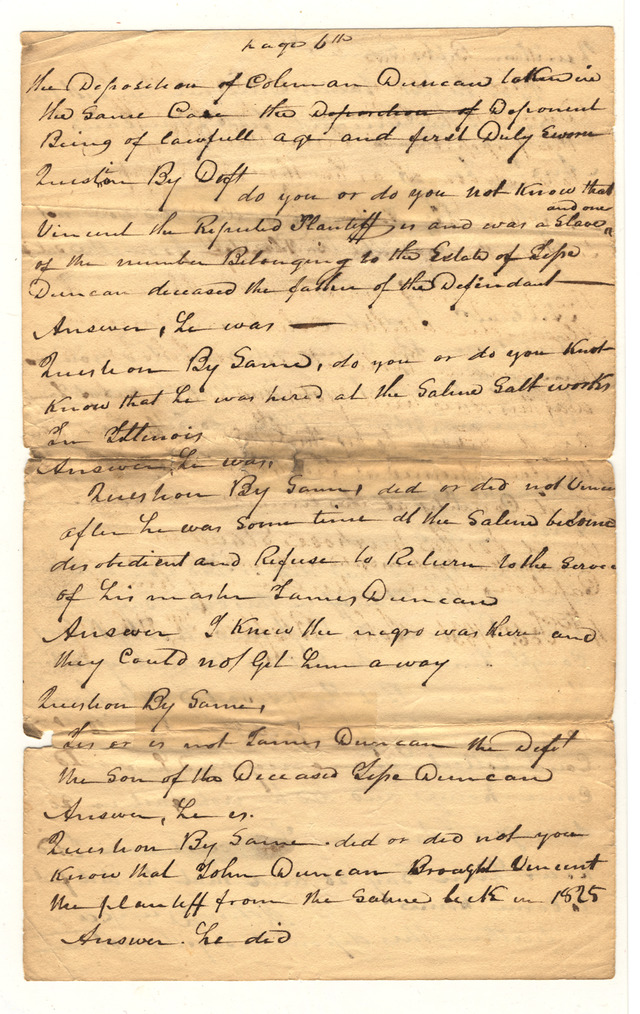 page 6th
the Deposition of Coleman Duncan taken in
the Same Case the Deposition of Deponent
Being of lawfull age and first Duly Sworn
Question By Deft
do you or do you not Know that
Vincent the Reputed Plantiff is and was a Slave and one
of the number Belonging to the Estate of Jesse
Duncan deceased the father of the Defendant —
Answer, he was —
Question By Same, do you or do you Knot
Know that he was hired at the Saline Salt works
In Illinois
Answer, he was,
Question By Same, did or did not Vince
after he was Some time at the Saline become
disobedient and Refuse to Return to the Service
of his master James Duncan
Answer I Knew the negro was there and
they Could not Get him away
Question By Same,
his or is not James Duncan the Deft
the Son of the Deceased Jesse Duncan
Answer, he is.
Question By Same. did or did not you
Know that John Duncan Brought Vincent
the plantiff from the Saline lick in 1825
Answer. he did